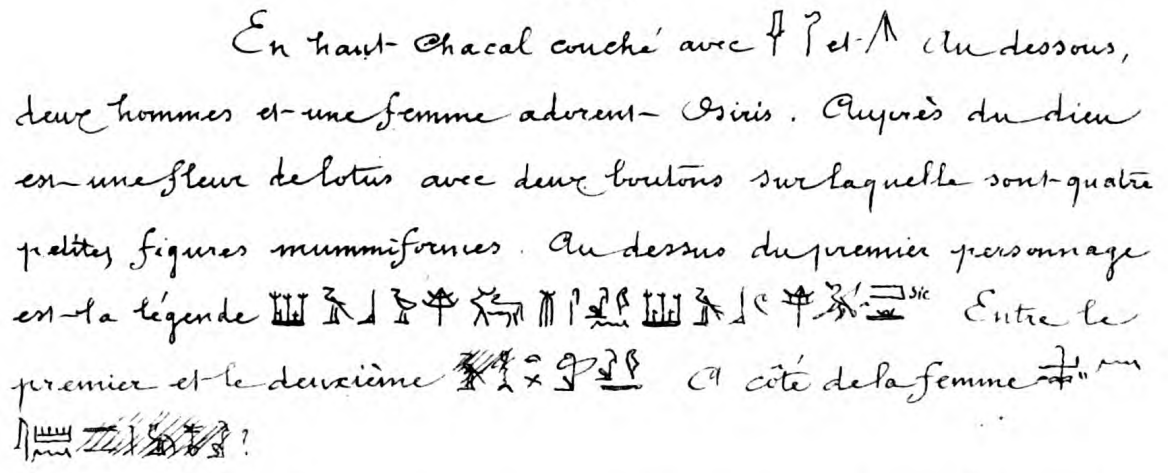 En haut Chacal couché avec et Au dessous,
deux hommes et une femme adorent Osiris. Auprès du dieu
est une fleur de lotus avec deux boutons sur laquelle sont quatre
petites figures mummiformes. Au dessus du premier personnage
est la légende sic Entre le
premier et le deuxième A côté de la femme
?